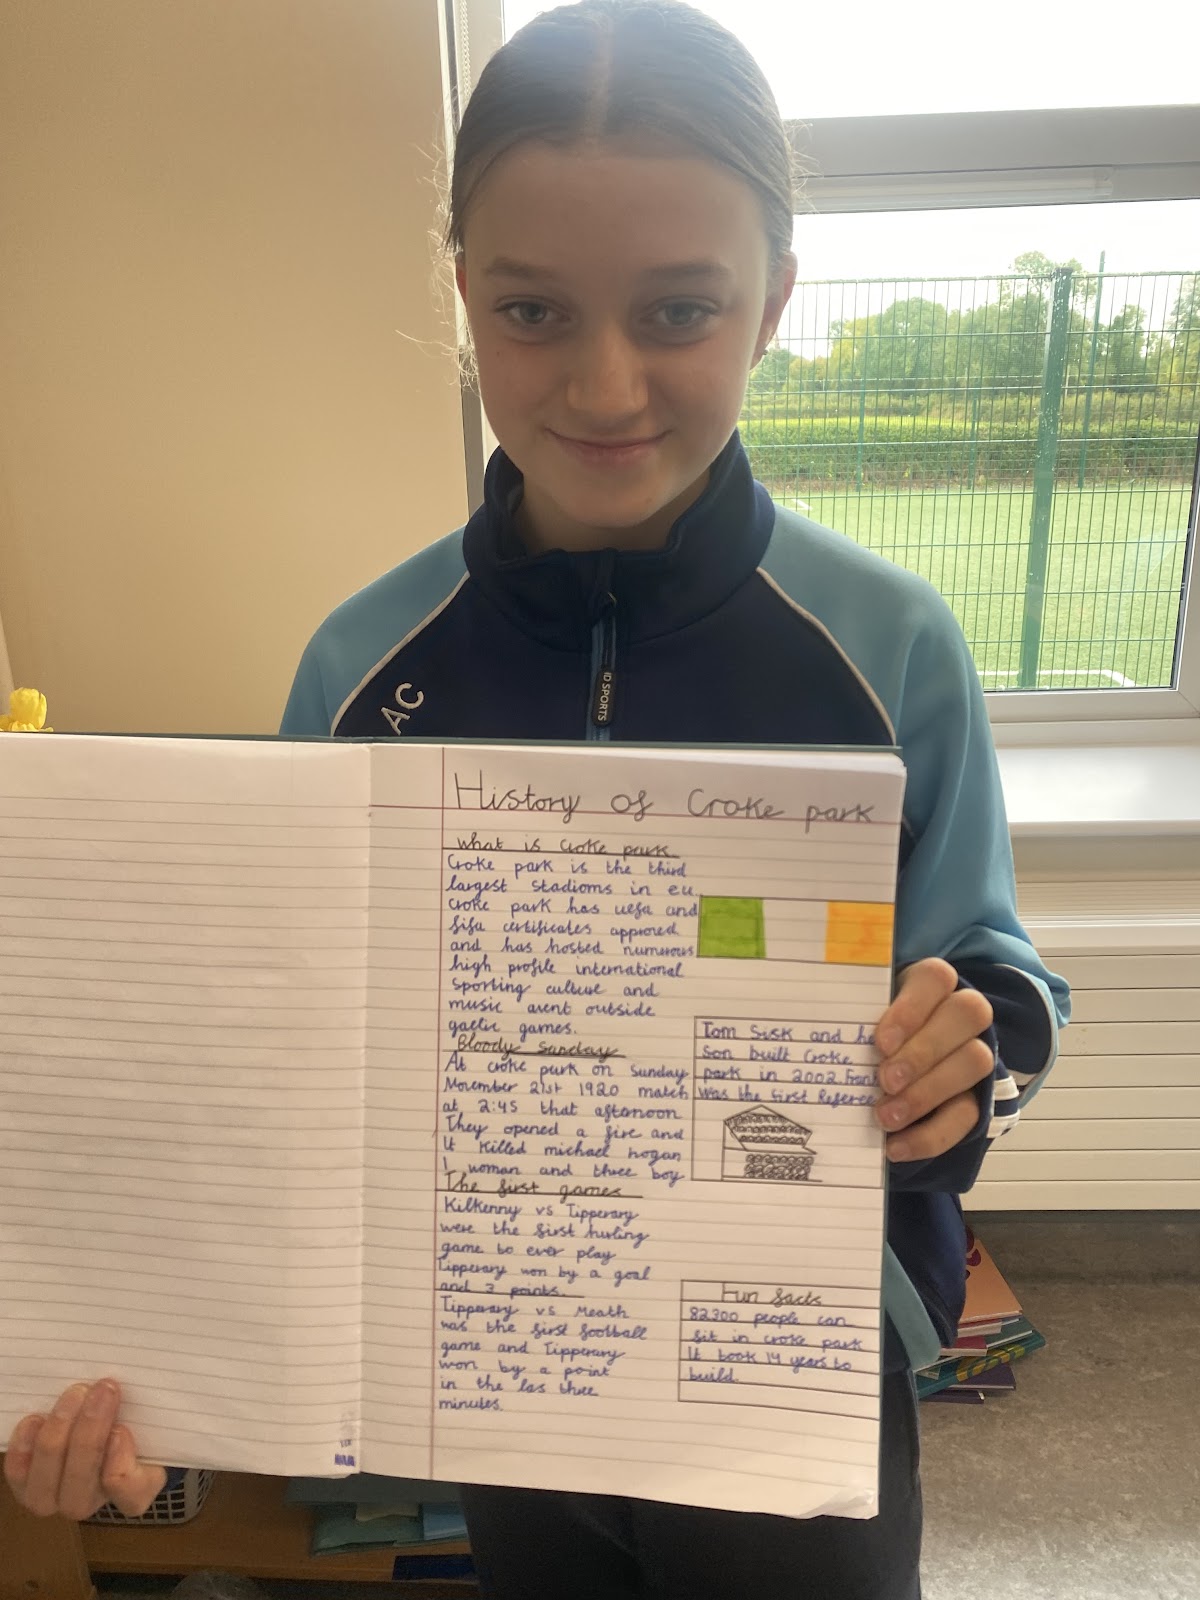 AC
ID SPORTS
History of Croke park
what is Croke park
Croke park is the third
largest stadioms in eu.
Croke park has uefa and
fifa certificates approved
and has hosted numerous
high profile international
sporting culture and
music avent outside
gaelic games.
Bloody Sunday
At croke park on Sunday
November 21st 1920 match
at 2:45 that aftonoon
They opened a fire and
it killed michael hogan
1 woman and three boy
The first games
Kilkenny vs Tipperary
were the first hurling
game to ever play
Tipperary won by a goal
and 3 points.
Tipperary vs Meath
was the first football
game and Tipperary
won by a point
in the las three
minutes.
Tom Sisk and he
son built Croke
park in 2002. Frank
was the first Referee
Fun facts
82300 people can
sit in croke park
It took 14 years to
build.